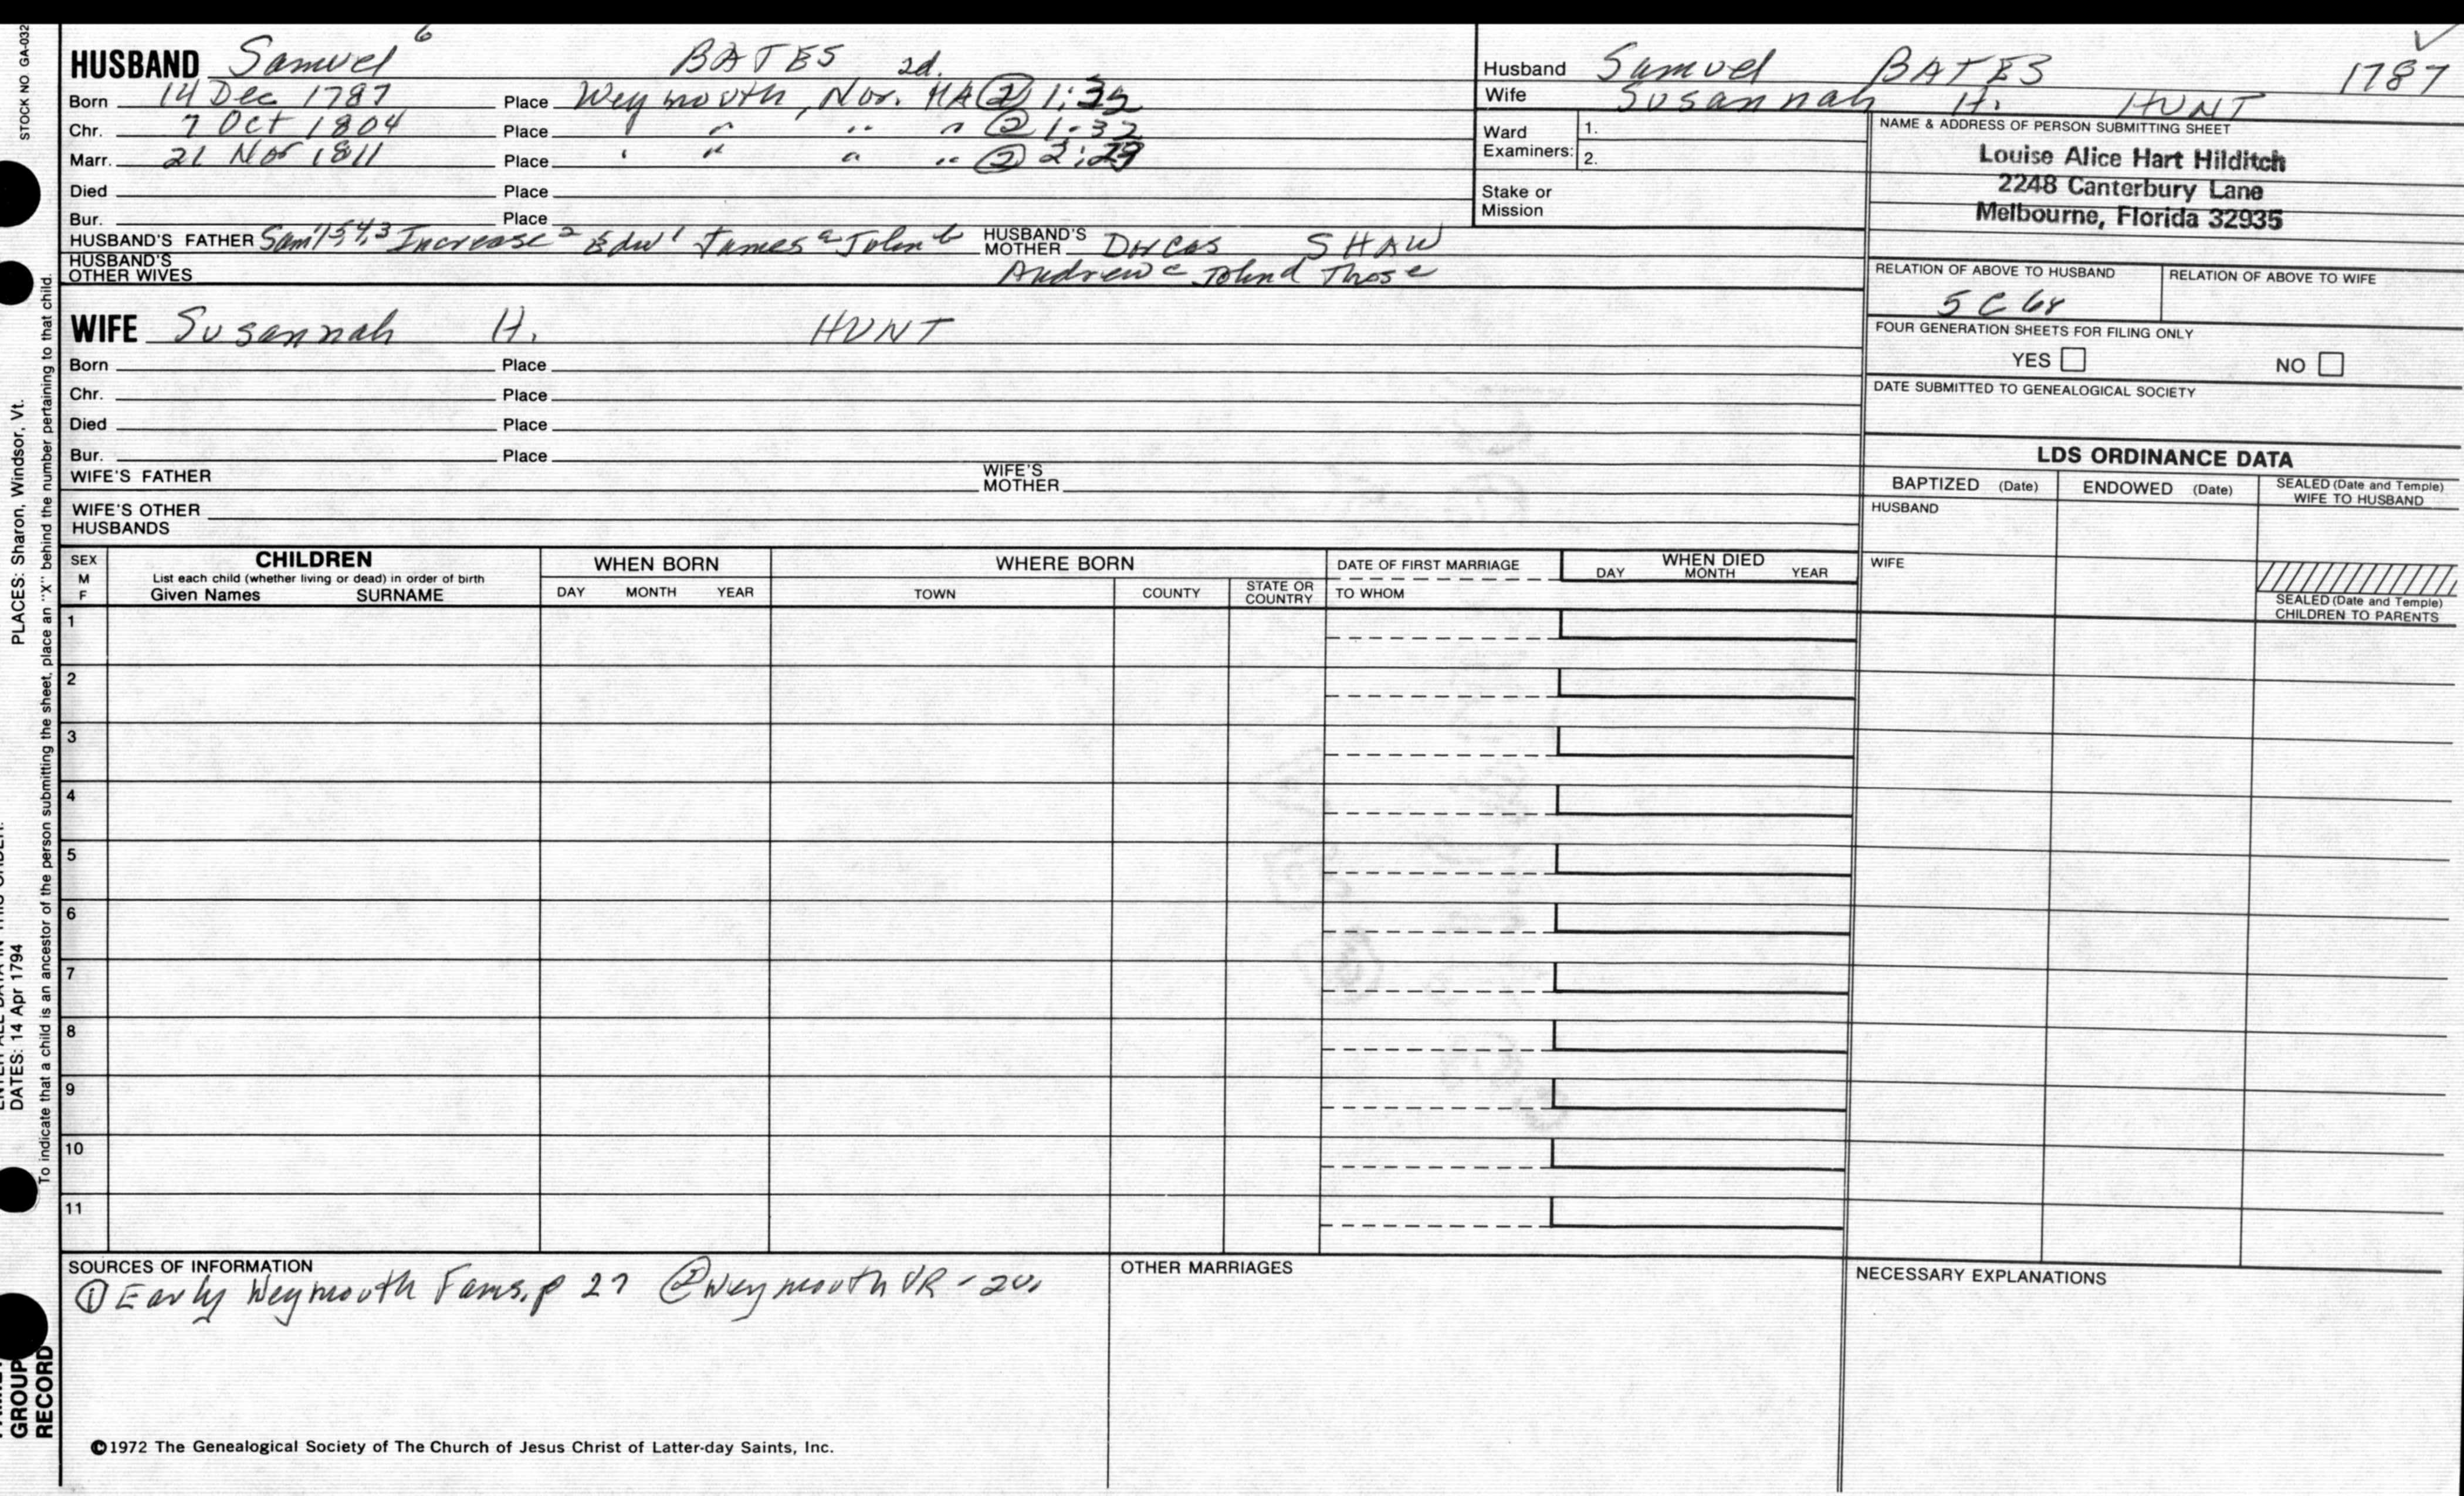 STOCK NO GA-032
PLACES: Sharon, Windsor, Vt.
DATES: 14 Apr 1794
To indicate that a child is an ancestor of the person submitting the sheet, place an "X" behind the number pertaining to that child.
GROUP
RECORD
HUSBAND Samuel 6 BATES 2d.
Born 14 Dec 1787 Place Weymouth, Nor. MA ② 1:35
Chr. 7 Oct 1804 Place " " " " ② 1:32
Marr. 21 Nov 1811 Place " " " " ② 2:29
Died Place
Bur. Place
HUSBAND'S FATHER Sam'l 5 4,3 Increase 2 Edw 1 James a John b HUSBAND'S MOTHER Dorcas SHAW
HUSBAND'S OTHER WIVES Andrew c John d Thos e
WIFE Susannah H. HUNT
Born Place
Chr. Place
Died Place
Bur. Place
WIFE'S FATHER WIFE'S MOTHER
WIFE'S OTHER HUSBANDS
Husband Samuel BATES 1787
Wife Susannah H. HUNT
Ward Examiners: 1.
2.
Stake or Mission
NAME & ADDRESS OF PERSON SUBMITTING SHEET
Louise Alice Hart Hilditch
2248 Canterbury Lane
Melbourne, Florida 32935
RELATION OF ABOVE TO HUSBAND RELATION OF ABOVE TO WIFE
5 C 6r
FOUR GENERATION SHEETS FOR FILING ONLY
YES NO
DATE SUBMITTED TO GENEALOGICAL SOCIETY
LDS ORDINANCE DATA
BAPTIZED (Date) ENDOWED (Date) SEALED (Date and Temple) WIFE TO HUSBAND
HUSBAND
WIFE
SEALED (Date and Temple)
CHILDREN TO PARENTS
SEX M F CHILDREN WHEN BORN WHERE BORN DATE OF FIRST MARRIAGE WHEN DIED
List each child (whether living or dead) in order of birth
Given Names SURNAME DAY MONTH YEAR TOWN COUNTY STATE OR COUNTRY TO WHOM DAY MONTH YEAR
1
2
3
4
5
6
7
8
9
10
11
SOURCES OF INFORMATION OTHER MARRIAGES NECESSARY EXPLANATIONS
① Early Weymouth Fams. p 27 ② Weymouth VR - 2v.
©1972 The Genealogical Society of The Church of Jesus Christ of Latter-day Saints, Inc.